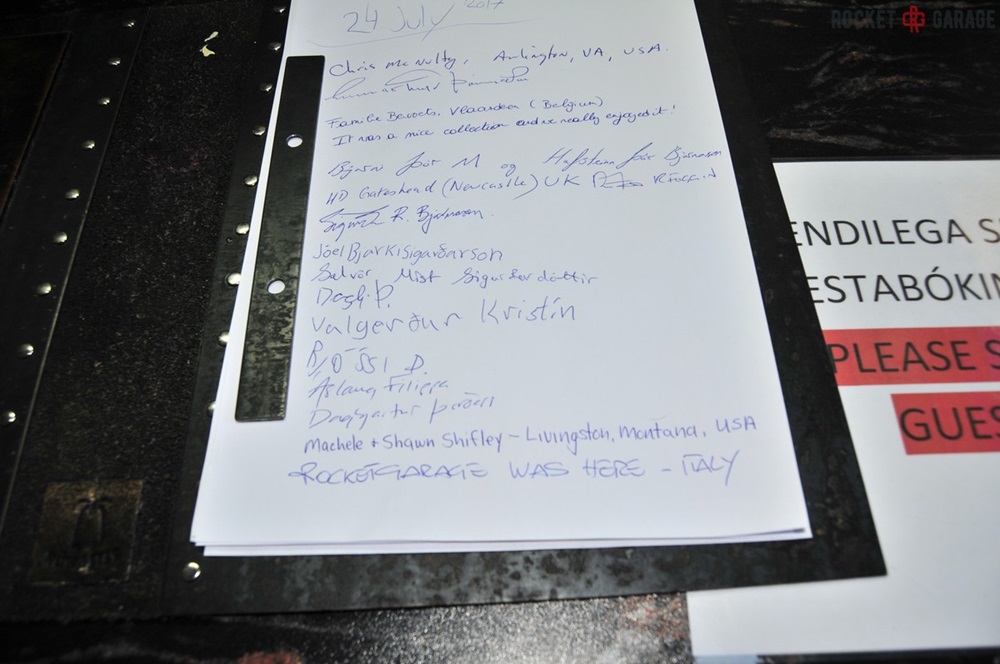 ROCKET GARAGE
24 July 2017
Chris McNulty, Arlington, VA, USA.
Familie Bevoets, Vlaanderen (Belgium)
It was a nice collection and we really enjoyed it!
Bjarni Þór M og Hafsteinn Þór Björnsson
HD Gateshead (Newcastle) UK
R. Björnsson
Jóel Bjarki Sigurðarson
Salvör Mist Sigurðardóttir
Valgerður Kristín
Áslaug Filippa
Machele + Shawn Shifley - Livingston, Montana, USA
ROCKETGARAGE WAS HERE - ITALY
ENDILEGA S
ESTABÓKIN
PLEASE S
GUES